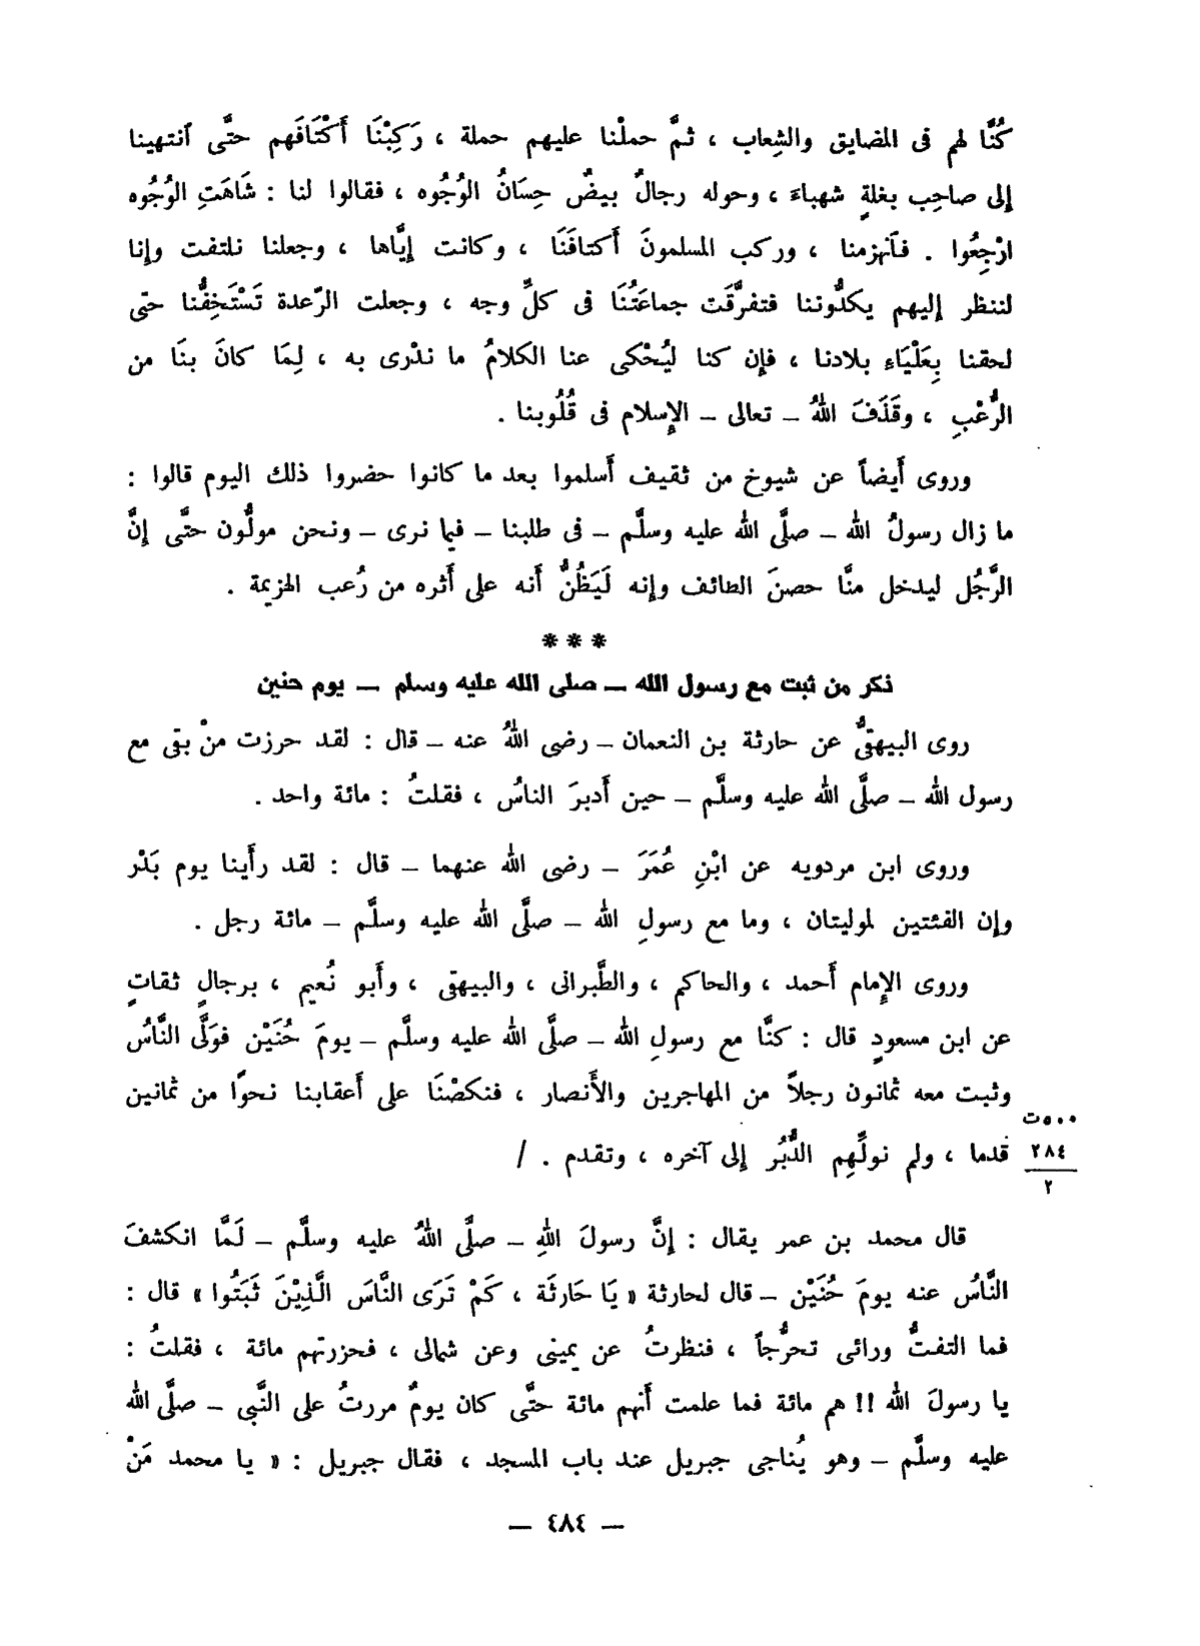 كُنَّا لهم فى المضايق والشِعاب ، ثمَّ حملْنا عليهم حملة ، رَكِبْنَا أَكْتَافَهم حتَّى ٱنتهينا
إلى صاحِب بغلةٍ شهباءَ ، وحوله رجالٌ بيضٌ حِسَانُ الوُجُوه ، فقالوا لنا : شَاهَتِ الوُجُوه
ارْجِعُوا . فٱنهزمنا ، وركب المسلمونَ أَكتافَنَا ، وكانت إيَّاها ، وجعلنا نلتفت وإنا
لننظر إليهم يكدُّوننا فتفرَّقَت جماعَتُنَا فى كلِّ وجه ، وجعلت الرّعدة تَسْتَخِفُّنا حتى
لحقنا بِعَلْيَاءِ بلادنا ، فإن كنا ليُحْكى عنا الكلامُ ما ندْرى به ، لِمَا كانَ بنَا من
الرُّعْبِ ، وقَذَفَ اللهُ – تعالى – الإسلام فى قُلُوبنا .
وروى أَيضاً عن شيوخ من ثقيف أَسلموا بعد ما كانوا حضروا ذلك اليوم قالوا :
ما زال رسولُ الله – صلَّى الله عليه وسلَّم – فى طلبنا – فيما نرى – ونحن مولُّون حتَّى إنَّ
الرَّجُل ليدخل منَّا حصنَ الطائف وإنه لَيَظُنُّ أَنه على أَثره من رُعب الهزيمة .
***
ذكر من ثبت مع رسول الله – صلى الله عليه وسلم – يوم حنين
روى البيهقىُّ عن حارثة بن النعمان – رضى اللهُ عنه – قال : لقد حرزت منْ بقى مع
رسول الله – صلَّى الله عليه وسلَّم – حين أَدبرَ الناسُ ، فقلتُ : مائة واحد .
وروى ابن مردويه عن ابْنِ عُمَرَ – رضى الله عنهما – قال : لقد رأَينا يوم بَدْر
وإن الفئتين لموليتان ، وما مع رسولِ الله – صلَّى الله عليه وسلَّم – مائة رجل .
وروى الإِمام أَحمد ، والحاكم ، والطَّبرانى ، والبيهقى ، وأَبو نُعيم ، برجالٍ ثقاتٍ
عن ابن مسعودٍ قال : كنَّا مع رسولِ الله – صلَّى الله عليه وسلَّم – يومَ حُنَيْن فوَلَّى النَّاسُ
وثبت معه ثمانون رجلاً من المهاجرين والأَنصار ، فنكصْنَا على أَعقابنا نحوًا من ثمانين
قدما ، ولم نولِّهِم الدُّبُر إلى آخره ، وتقدم . /
٥٠٠ت
٢٨٤
٢
قال محمد بن عمر يقال : إنَّ رسولَ اللهِ – صلَّى اللهُ عليه وسلَّم – لَمَّا انكشفَ
النَّاسُ عنه يومَ حُنَيْن – قال لحارثة « يَا حَارثَة ، كَمْ تَرَى النَّاسَ الَّذِيْنَ ثَبَتُوا » قال :
فما التفتُّ ورائى تحرُّجاً ، فنظرتُ عن يمينى وعن شمالى ، فحزرتهم مائة ، فقلتُ :
يا رسولَ الله !! هم مائة فما علمت أَنهم مائة حتَّى كان يومٌ مررتُ على النَّبى – صلَّى الله
عليه وسلَّم – وهو يُناجى جبريل عند باب المسجد ، فقال جبريل : « يا محمد مَنْ
– ٤٨٤ –